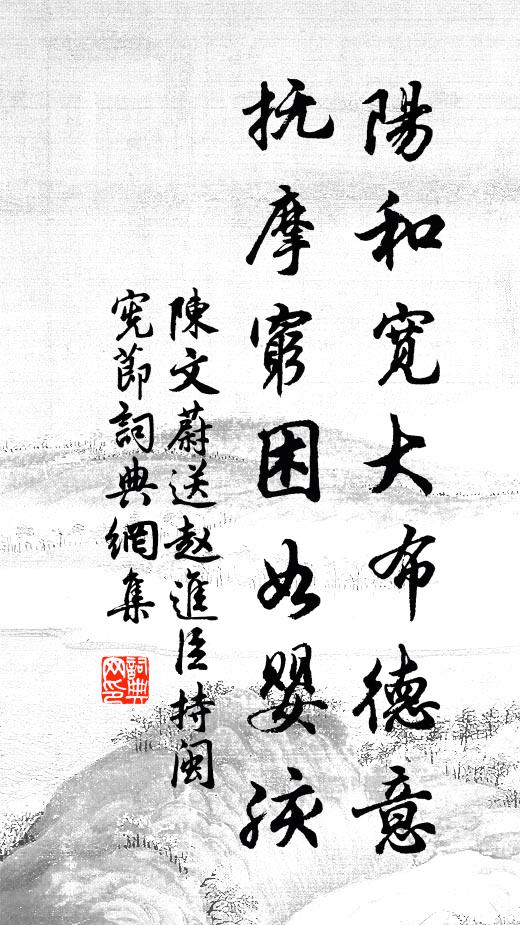 陽和寬大布德意
撫摩窮困如嬰孩
陳文蔚送赵進臣持閩
宪節詞典網集
詞典网印